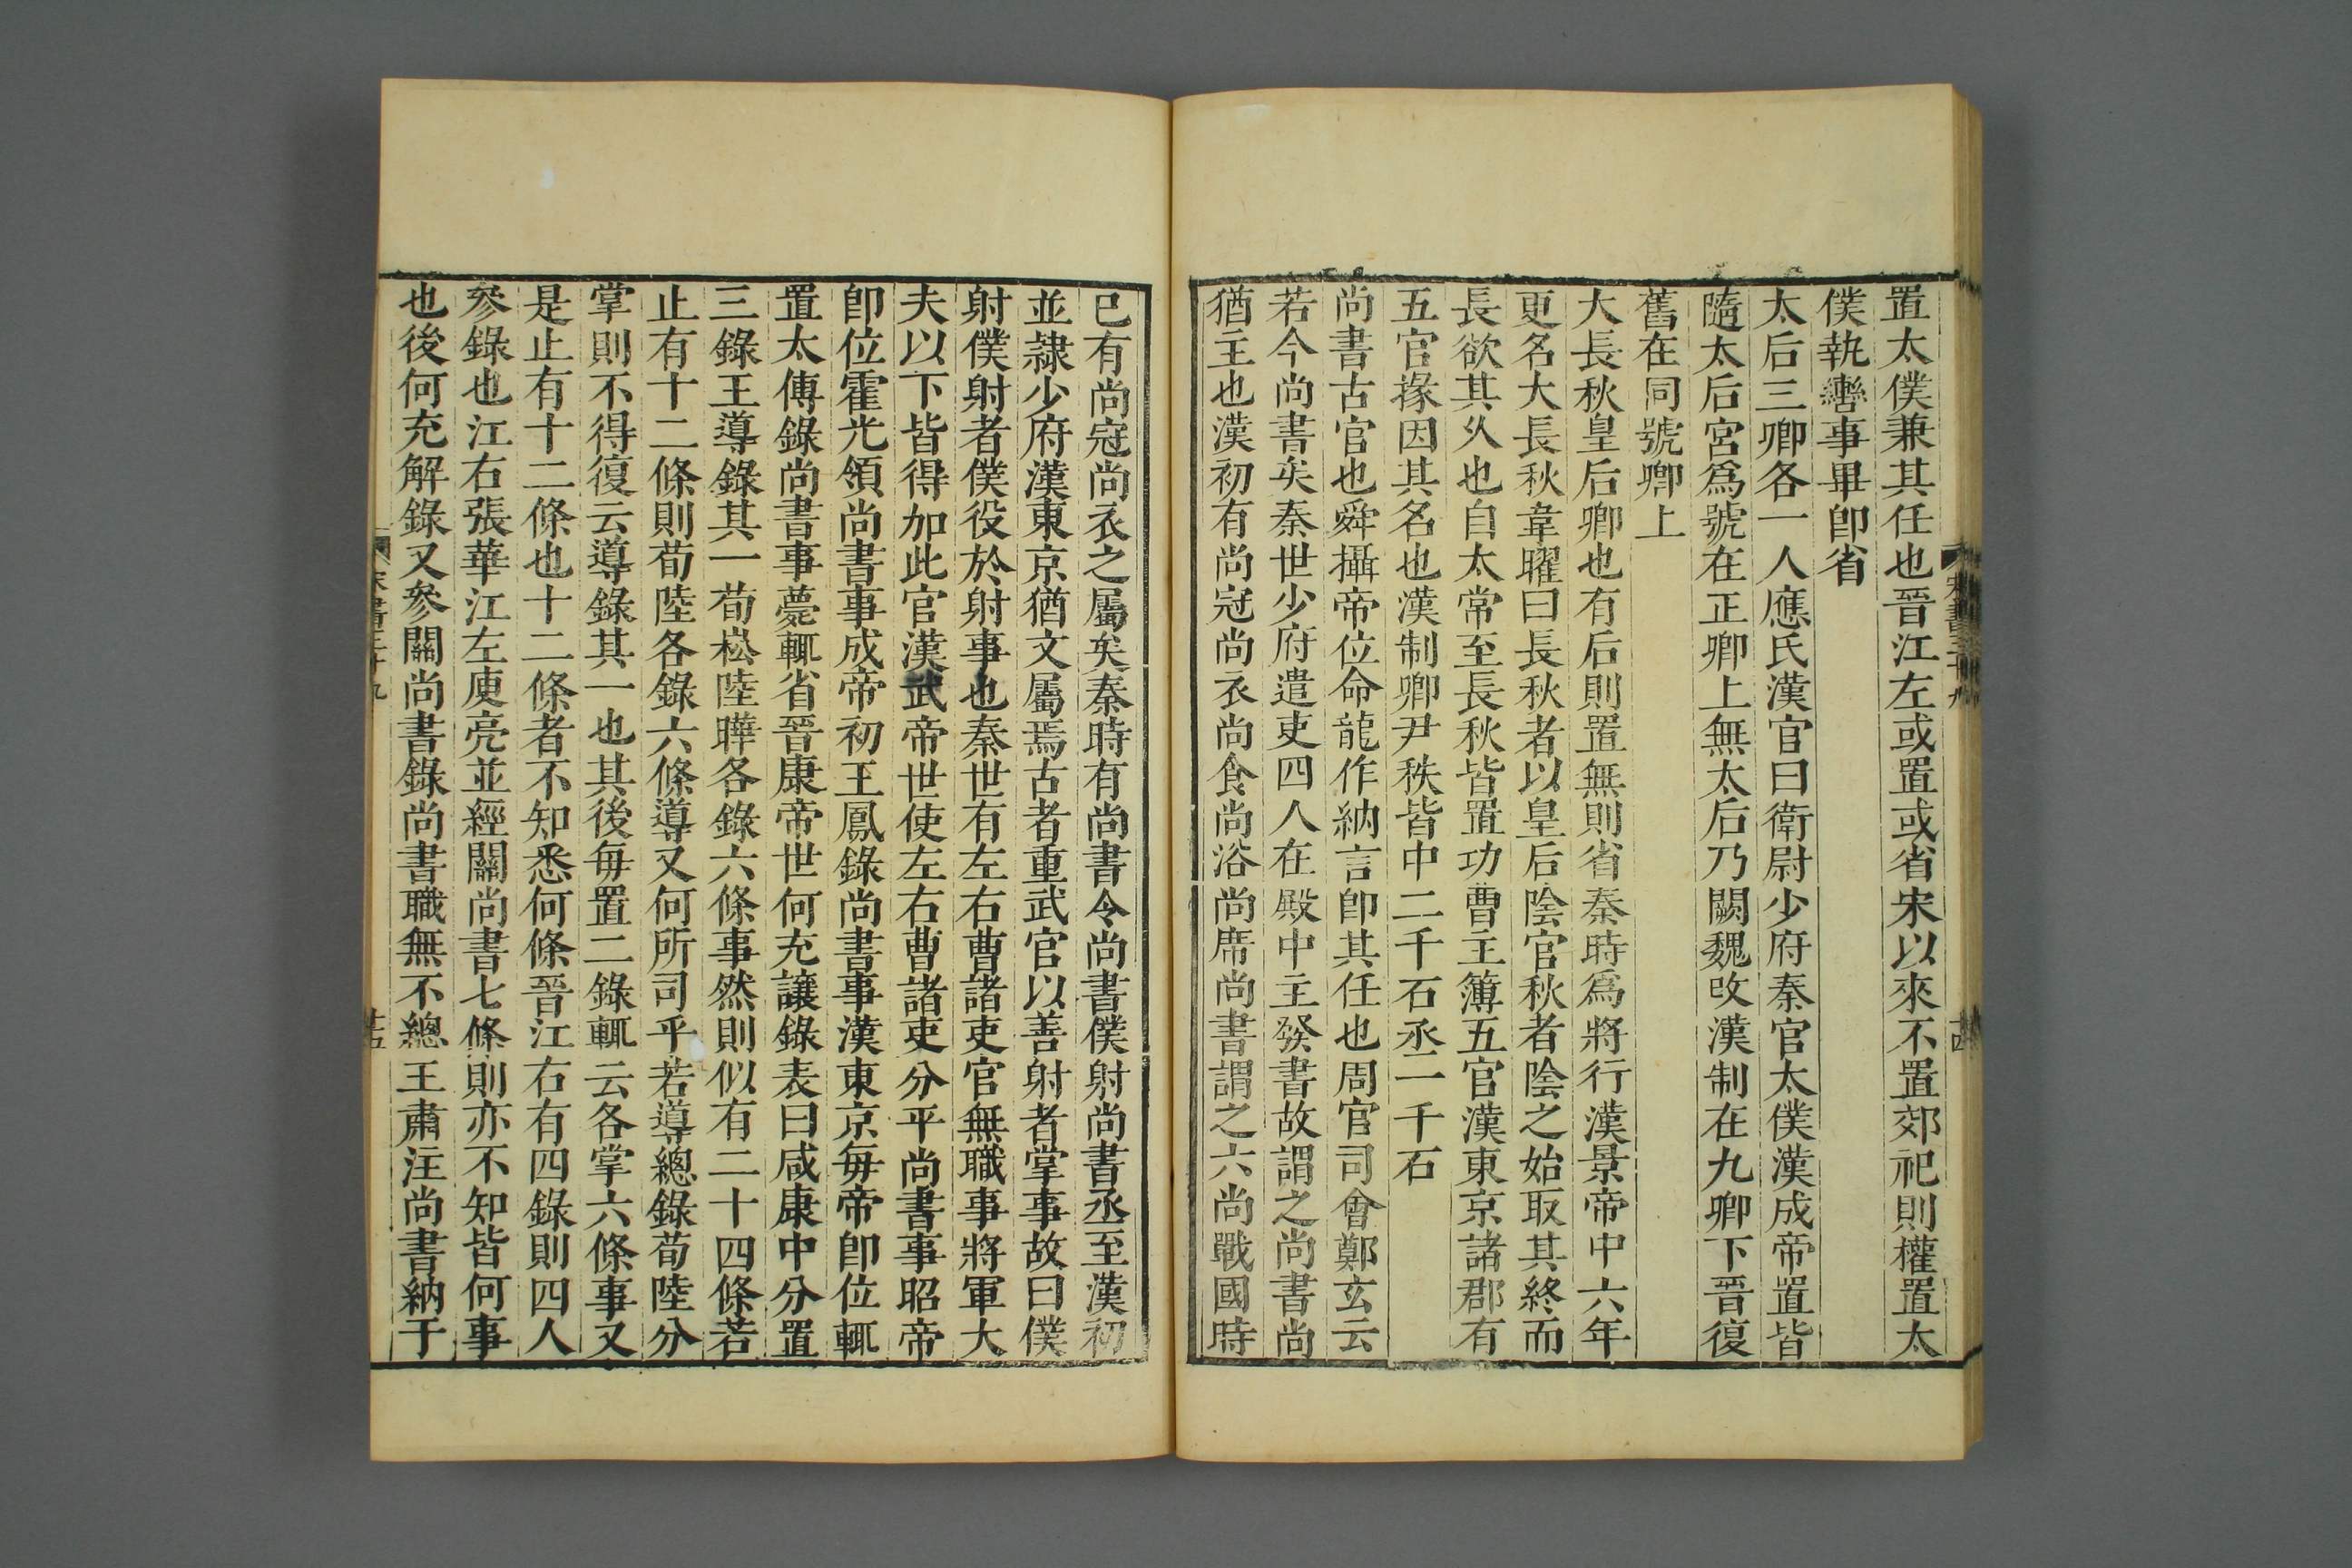 置太僕兼其任也晉江左或置或省宋以來不置郊祀則權置太
僕執轡事畢卽省
太后三卿各一人應氏漢官曰衛尉少府秦官太僕漢成帝置皆
隨太后宮爲號在正卿上無太后乃闕魏改漢制在九卿下晉復
舊在同號卿上
大長秋皇后卿也有后則置無則省秦時爲將行漢景帝中六年
更名大長秋韋曜曰長秋者以皇后陰官秋者陰之始取其終而
長欲其久也自太常至長秋皆置功曹主簿五官漢東京諸郡有
五官掾因其名也漢制卿尹秩皆中二千石丞一千石
尚書古官也舜攝帝位命龍作納言卽其任也周官司會鄭玄云
若今尚書矣秦世少府遣吏四人在殿中主發書故謂之尚書尚
猶主也漢初有尚冠尚衣尚食尚浴尚席尚書謂之六尚戰國時
已有尚冠尚衣之屬矣秦時有尚書令尚書僕射尚書丞至漢初
並隸少府漢東京猶文屬焉古者重武官以善射者掌事故曰僕
射僕射者僕役於射事也秦世有左右曹諸吏官無職事將軍大
夫以下皆得加此官漢武帝世使左右曹諸吏分平尚書事昭帝
卽位霍光領尚書事成帝初王鳳錄尚書事漢東京每帝卽位輒
置太傅錄尚書事薨輒省晉康帝世何充讓錄表曰咸康中分置
三錄王導錄其一荀崧陸曄各錄六條事然則似有二十四條若
止有十二條則荀陸各錄六條導又何所司乎若導總錄荀陸分
掌則不得復云導錄其一也其後每置二錄輒云各掌六條事又
是止有十二條也十二條者不知悉何條晉江右有四錄則四人
參錄也江右張華江左庾亮並經關尚書七條則亦不知皆何事
也後何充解錄又參關尚書錄尚書職無不總王肅注尚書納于
宋書三十九